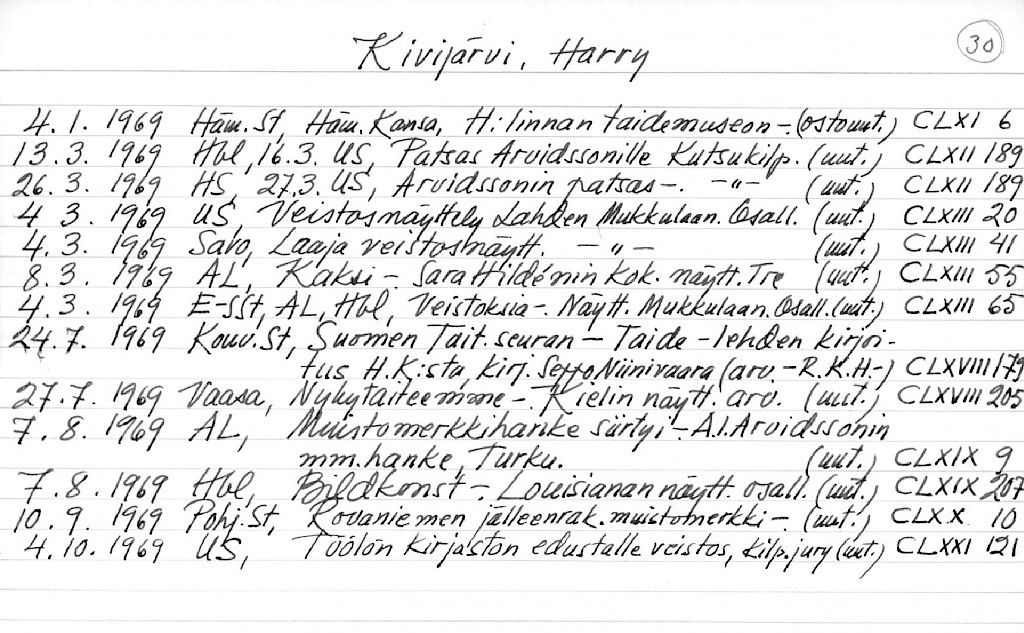 30
Kivijärvi, Harry
4.1. 1969 Häm.St, Häm.Kansa, H:linnan taidemuseon -. (ostouut.) CLXI 6
13.3. 1969 Hbl, 16.3. US, Patsas Arvidssonille Kutsukilp. (uut.) CLXII 189
26.3. 1969 HS, 27.3. US, Arvidssonin patsas -. -"- (uut.) CLXII 189
4 3. 1969 US, Veistosnäyttely Lahden Mukkulaan. Osall. (uut.) CLXIII 20
4.3. 1969 Savo, Laaja veistosnäytt. -"- (uut.) CLXIII 41
8.3. 1969 AL, Kaksi - Sara Hildénin kok. näytt. Tre (uut.) CLXIII 55
4.3. 1969 E-SSt, AL, Hbl, Veistoksia -. Näytt. Mukkulaan. Osall. (uut.) CLXIII 65
24.7. 1969 Kouv.St, Suomen Tait.seuran - Taide-lehden kirjoi-
tus H.K:sta, kirj. Seppo Niinivaara (arv. -R.K.H-) CLXVIII 179
27.7. 1969 Vaasa, Nykytaiteemme -. Kielin näytt. arv. (uut.) CLXVIII 205
7.8. 1969 AL, Muistomerkkihanke siirtyi -. A.I. Arvidssonin
mm.hanke, Turku. (uut.) CLXIX 9
7.8. 1969 Hbl, Bildkonst -. Louisianan näytt. osall. (uut.) CLXIX 207
10.9. 1969 Pohj.St, Rovaniemen jälleenrak.muistomerkki -. (uut.) CLXX 10
4.10. 1969 US, Töölön kirjaston edustalle veistos, kilp.jury (uut.) CLXXI 121